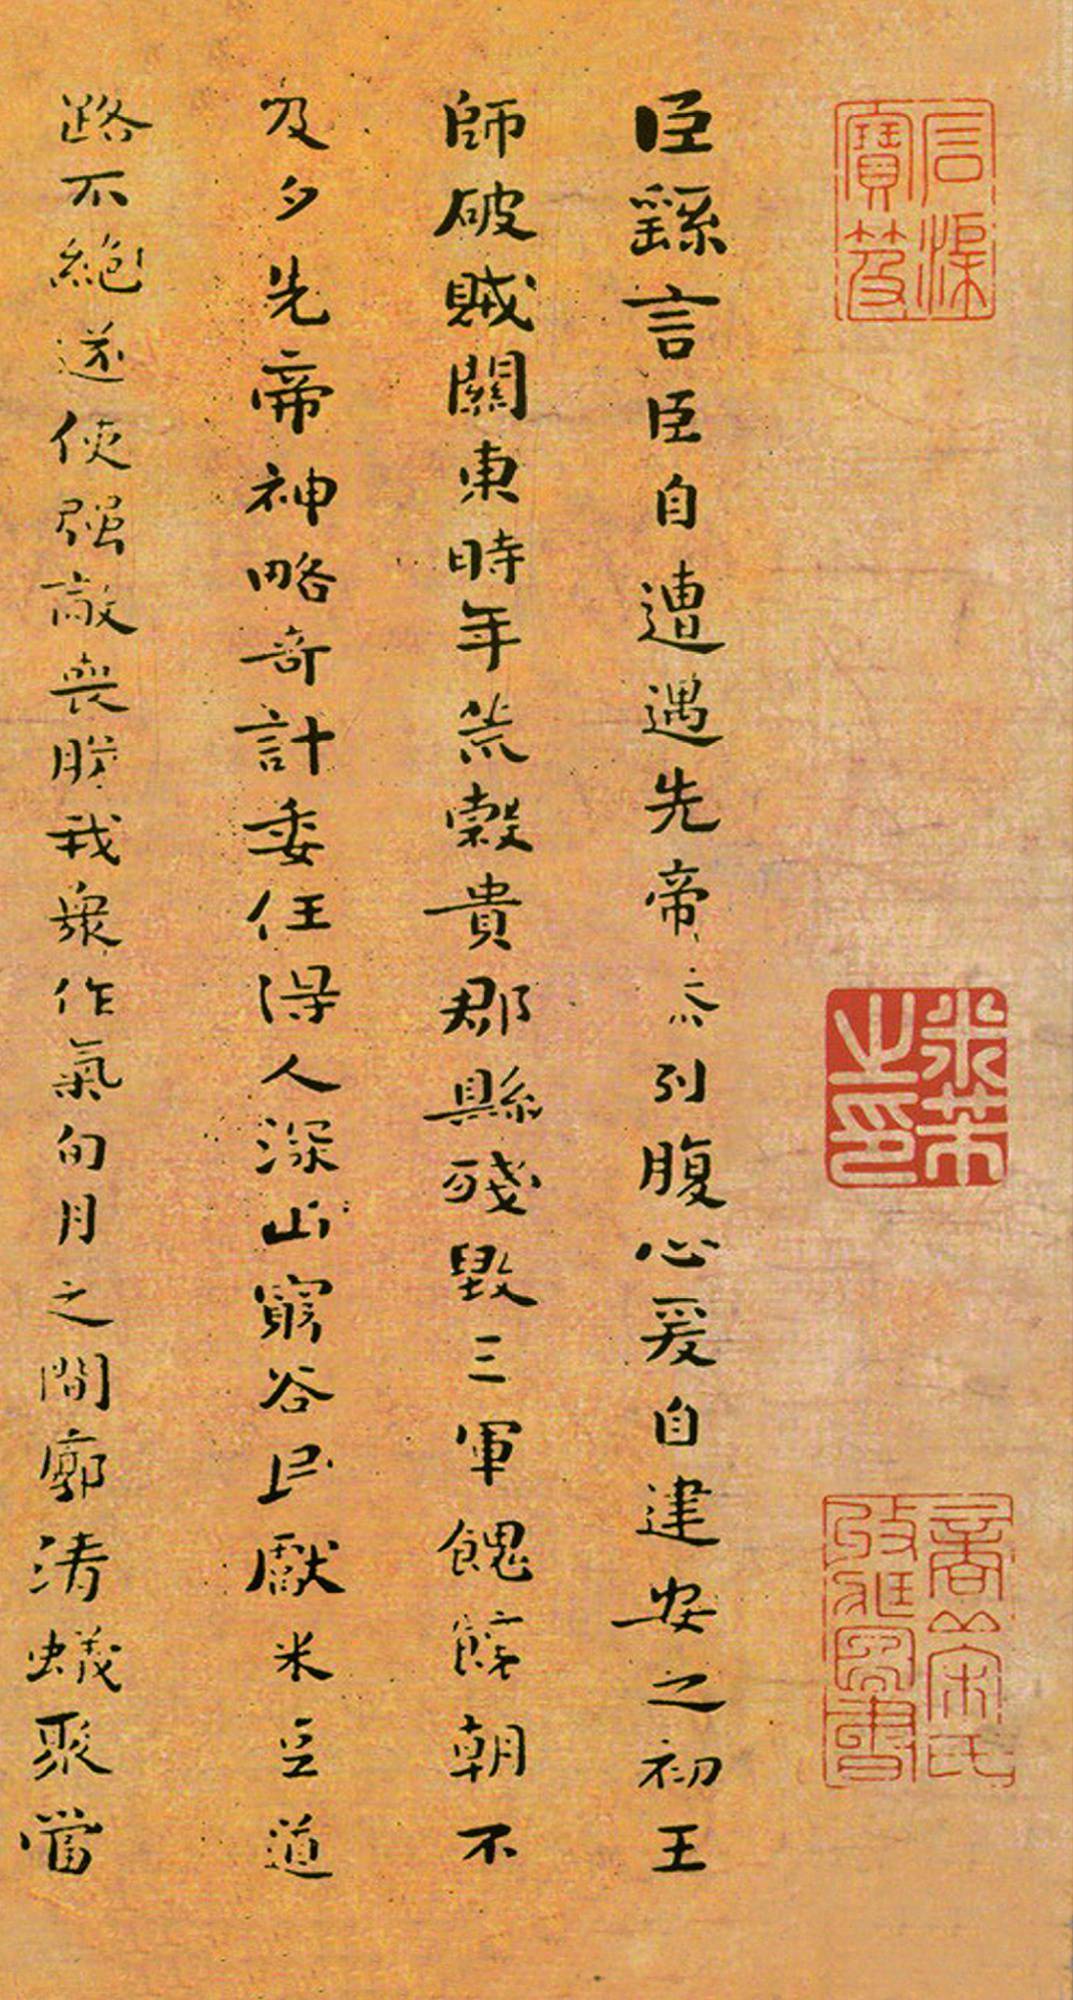 石渠
寶笈
米芾
之印
商丘宋氏
圖書
臣繇言臣自遭遇先帝忝列腹心爰自建安之初王
師破賊關東時年荒穀貴郡縣殘毀三軍餽饟朝不
及夕先帝神略奇計委任得人深山窮谷民獻米豆道
路不絶遂使强敵喪膽我衆作氣旬月之間廓清蟻聚當